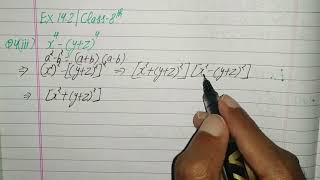 Ex 14.2 | Class-8th
Q4(iii) x⁴ - (y+z)⁴
a²-b² = (a+b) (a-b)
⇒ (x²)² - [(y+z)²]² ⇒ [x²+(y+z)²] [x²-(y+z)²]
⇒ [x²+(y+z)²]